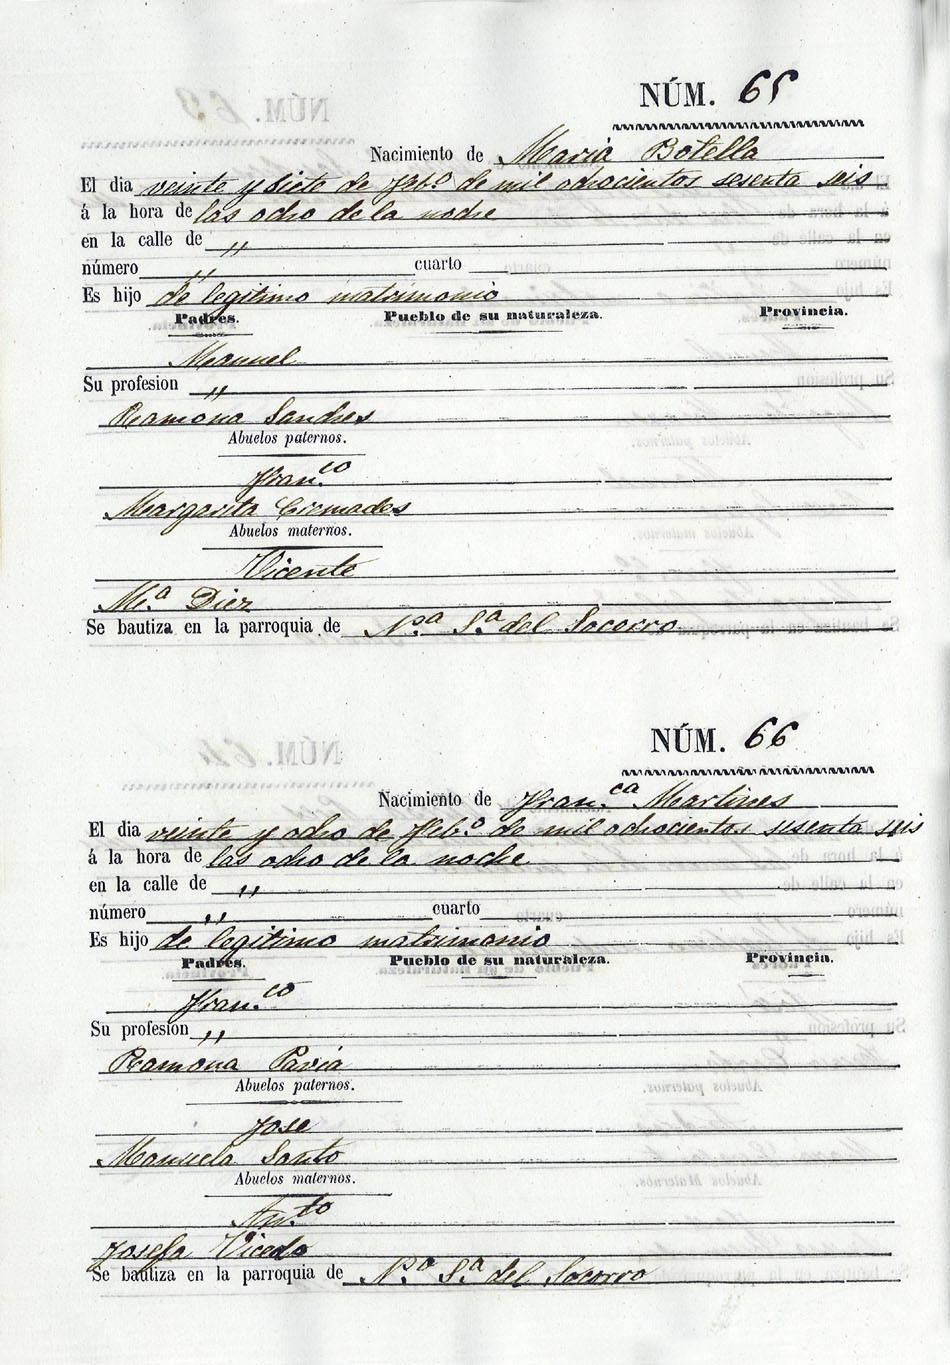 NÚM. 65
Nacimiento de Maria Botella
El dia veinte y siete de Feb.º de mil ochocientos sesenta seis
á la hora de las ocho de la noche
en la calle de "
número " cuarto
Es hijo de legitimo matrimonio
Padres. Pueblo de su naturaleza. Provincia.
Manuel
Su profesion "
Ramona Sandres
Abuelos paternos.
Fran.co
Margarita Cremades
Abuelos maternos.
Vicente
M.a Diez
Se bautiza en la parroquia de N.a S.a del Socorro
NÚM. 66
Nacimiento de Fran.ca Martines
El dia veinte y ocho de Feb.º de mil ochocientos sesenta seis
á la hora de las ocho de la noche
en la calle de "
número " cuarto
Es hijo de legitimo matrimonio
Padres. Pueblo de su naturaleza. Provincia.
Fran.co
Su profesion "
Ramona Pavia
Abuelos paternos.
Jose
Manuela Santo
Abuelos maternos.
Ant.to
Josefa Vicedo
Se bautiza en la parroquia de N.a S.a del Socorro